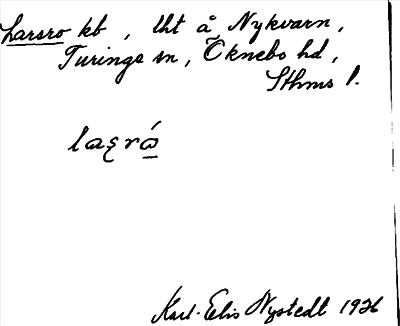 Larsro kb, lht å Nykvarn,
Turinge sn, Öknebo hd,
Sthms l.
Karl-Elis Nystedt 1926